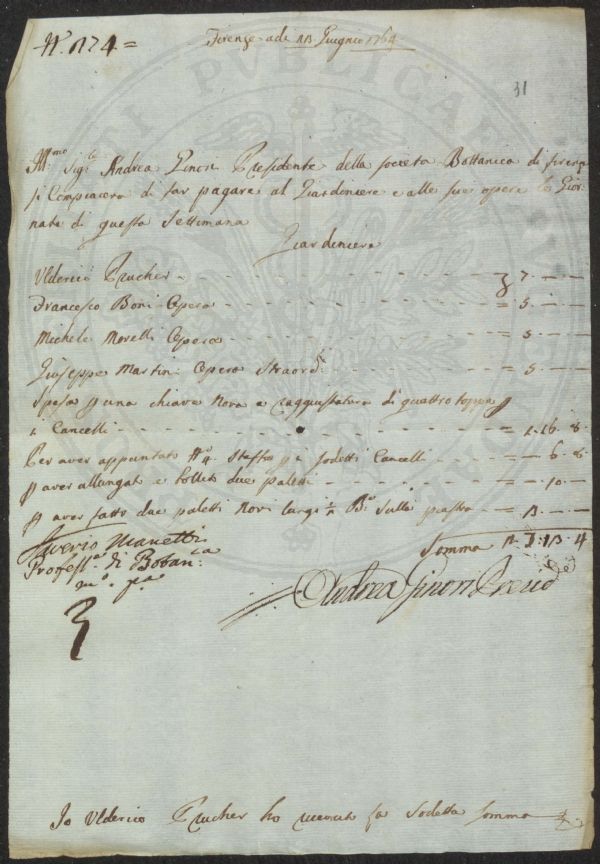 Nº. 174 =
Firenze adì 13 Giugnio 1764
31
Ill.mo Sig.re Andrea Ginori Presidente della Società Bottanica di Firenze
si Compiacerà di far pagare al Giardiniere e alle sue opere le Gior-
nate di questa Settimana
Giardiniere
Ulderico Prucher - - - 7 - -
Francesco Boni Opera - - - = 5 - -
Michele Moretti Opera - - - = 5 - -
Giuseppe Martini Opera Straord. - - - = 5 - -
Spesa p una chiave nova e raggiustatura di quattro toppe p
i Cancelli - - - = 1. 16. 8.
Per aver appuntato Nº 4 Staffe p i sodetti Cancelli - - - = - 6. 8
p aver allungato e bollito due paletti - - - = - 10 - -
p aver fatto due paletti novi lunghi ½ Bº sulla piastra - - - =
Somma
Saverio Manetti
Profess.e di Botan.ca
m.º p.a
Andrea Ginori Presid.e
Io Ulderico Prucher ho ricevuto la sodetta somma